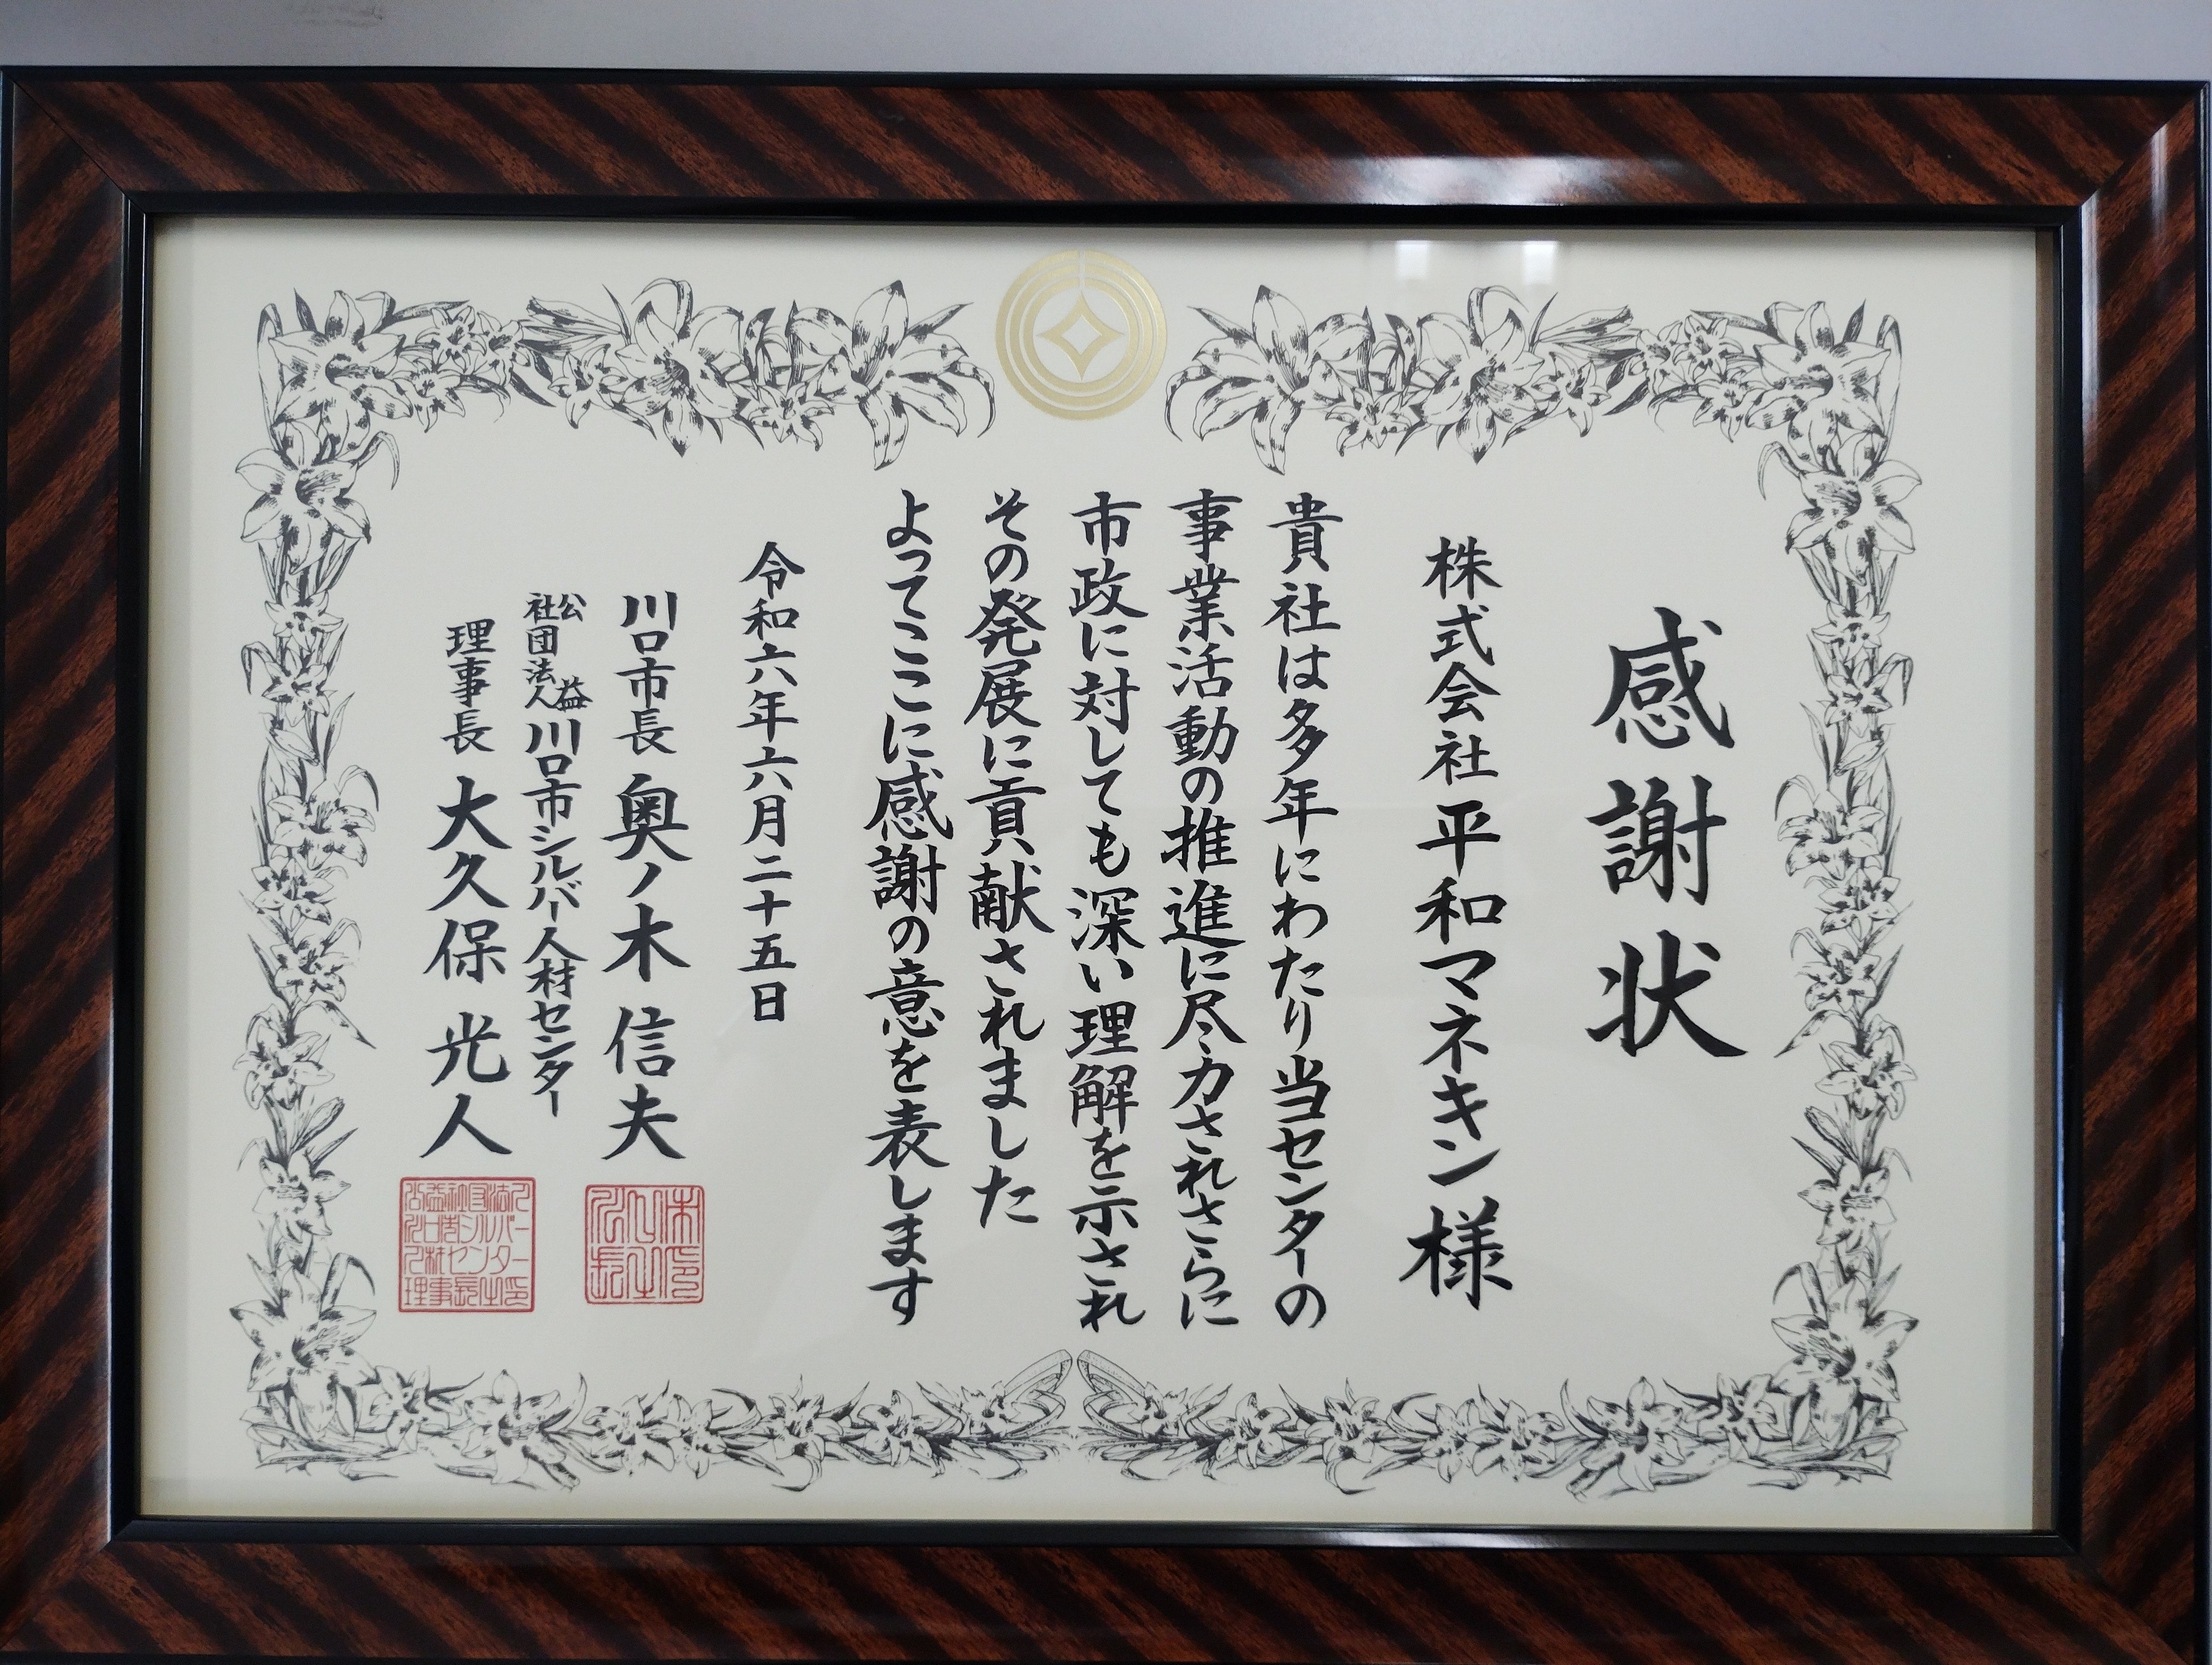 感謝状
株式会社平和マネキン様
貴社は多年にわたり当センターの
事業活動の推進に尽力されさらに
市政に対しても深い理解を示され
その発展に貢献されました
よってここに感謝の意を表します
令和六年六月二十五日
川口市長 奥ノ木信夫
公益社団法人川口市シルバー人材センター
理事長 大久保光人
公益社団法人
川口市シルバー
人材センター
理事長之印